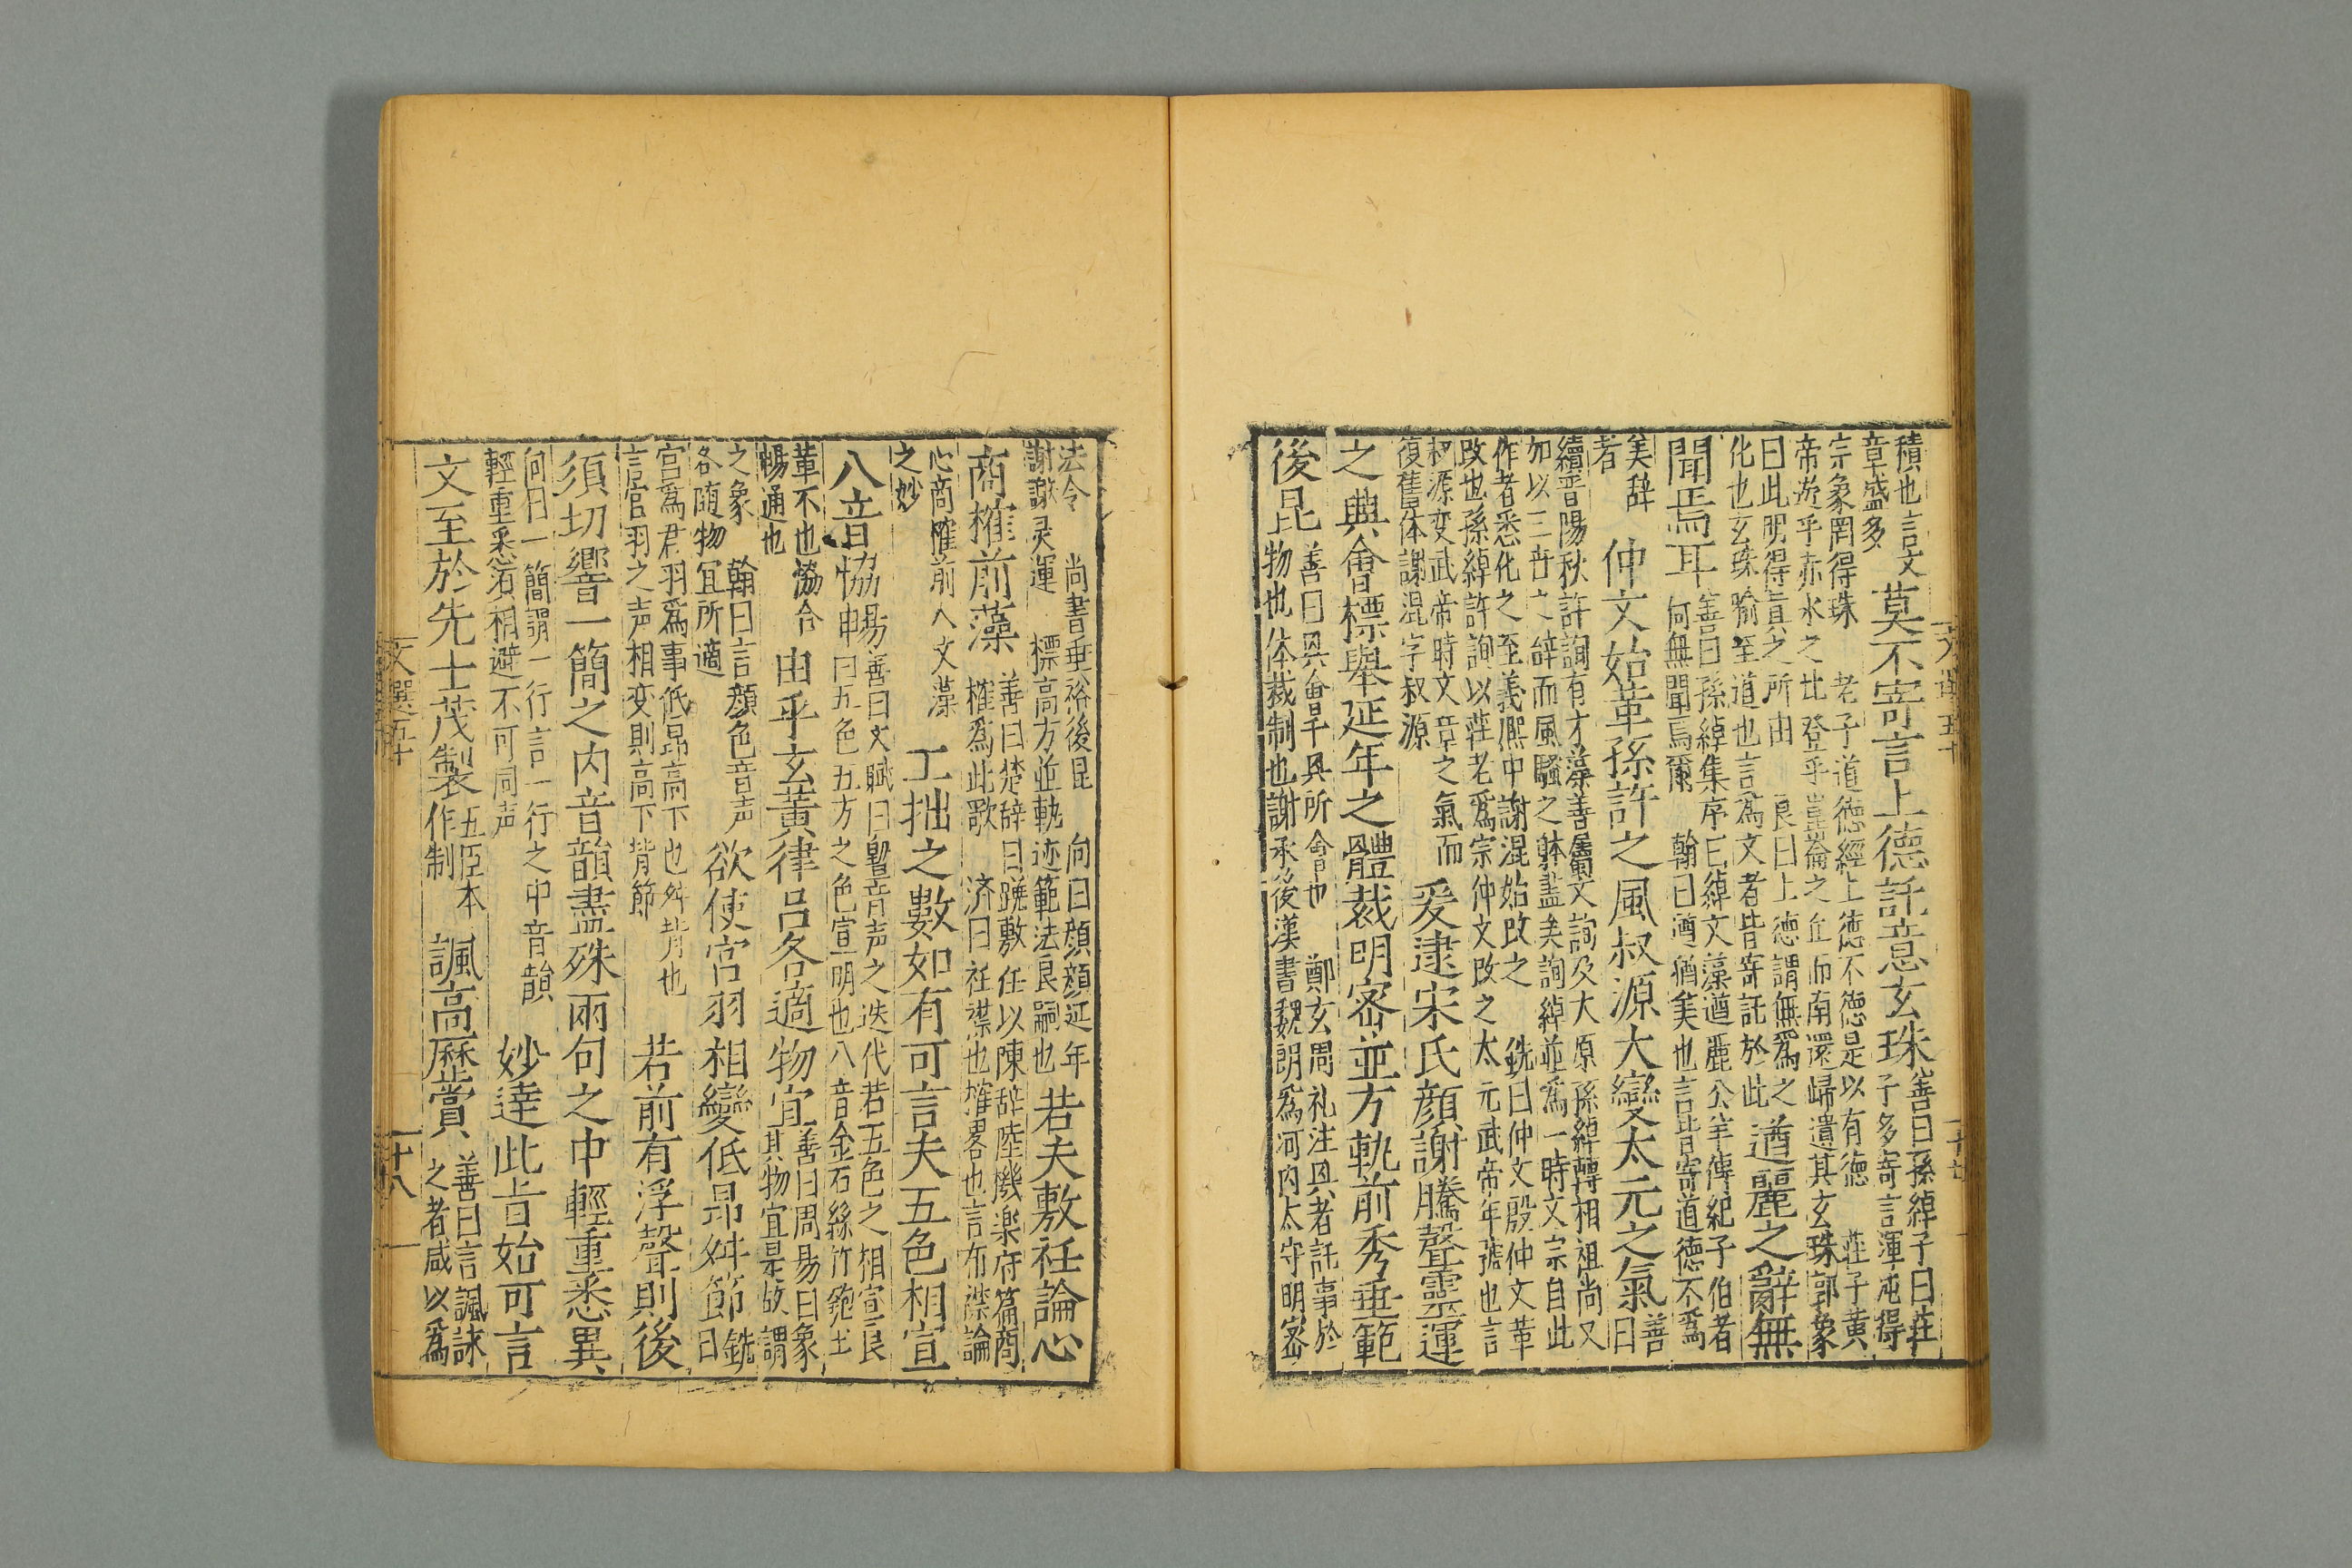 積也言文
章盛多
莫不寄言上德託意玄珠
善曰孫綽子曰莊
子多寄言渾沌得
宗象罔得珠 老子道德經上德不德是以有德 莊子黃
帝遊乎赤水之北登乎崑崙之丘而南還歸遺其玄珠郭象
曰此明得真之所由 良曰上德謂無爲之
化也玄珠喻至道也言爲文者皆寄託於此
遒麗之辭無
聞焉耳
善曰孫綽集序曰綽文藻遒麗公羊傳紀子伯者
何無聞焉爾 翰曰遒猶美也言皆寄道德不爲
美辞
者
仲文始革孫許之風叔源大變太元之氣
善
曰
續晉陽秋許詢有才藻善屬文詢及大原孫綽轉相祖尚又
加以三世之辞而風騷之躰盡矣詢綽並爲一時文宗自此
作者悉化之至義熈中謝混始改之 銑曰仲文殷仲文革
改也孫綽許詢以莊老爲宗仲文改之太元武帝年號也言
叔源变武帝時文章之氣而
復舊体謝混字叔源
爰逮宋氏顏謝騰聲靈運
之興會標舉延年之體裁明密並方軌前秀垂範
後昆
善曰興會早興所會也 鄭玄周礼注興者託事於
物也体裁制也謝承後漢書魏朗爲河内太守明密
法令 尚書垂裕後昆 向曰顔顔延年
謝謝灵運 標高方並軌迹範法良嗣也
若夫敷衽論心
商榷前藻
善曰楚辞曰跪敷衽以陳辞陸機楽府篇商
榷爲此歌 済曰衽襟也搉畧也言布襟論
心商榷前人文藻
之妙
工拙之數如有可言夫五色相宣
八音協暢
善曰文賦曰曁音声之迭代若五色之相宣良
曰五色五方之色宣明也八音金石絲竹匏土
革不也協合
暢通也
由乎玄黃律呂各適物宜
善曰周易曰象
其物宜是故謂
之象 翰曰言顔色音声
各随物宜所適
欲使宮羽相變低昂舛節
銑
曰
宮爲君羽爲事低昂高下也舛背也
言宮羽之声相变則高下背節
若前有浮聲則後
須切響一簡之内音韻盡殊兩句之中輕重悉異
向曰一簡謂一行言一行之中音韻
輕重悉須相避不可同声
妙達此旨始可言
文至於先士茂製
五臣本
作制
諷高歷賞
善曰言諷詠
之者咸以爲
文選五十
十八